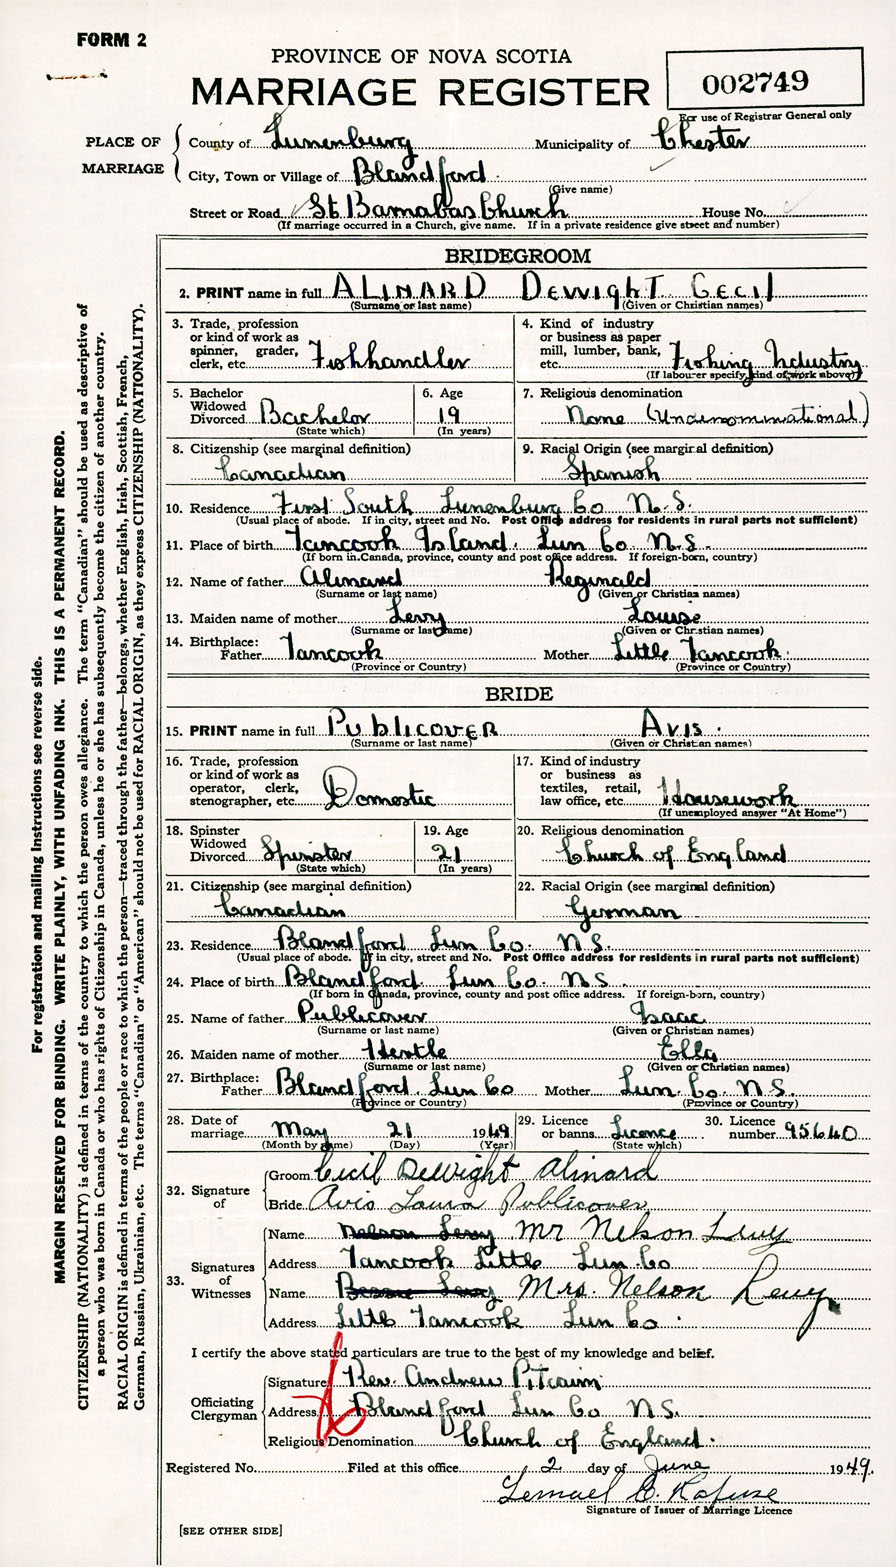 FORM 2
PROVINCE OF NOVA SCOTIA
MARRIAGE REGISTER
002749
For use of Registrar General only
PLACE OF MARRIAGE
County of Lunenburg Municipality of Chester
City, Town or Village of Blandford
(Give name)
Street or Road St. Barnabas Church House No.
(If marriage occurred in a Church, give name. If in a private residence give street and number)
BRIDEGROOM
2. PRINT name in full ALINARD DEWIGHT CECIL
(Surname or last name) (Given or Christian names)
3. Trade, profession or kind of work as spinner, grader, clerk, etc. Fishhandler
4. Kind of industry or business as paper mill, lumber, bank, etc. Fishing Industry
(If labourer specify kind of work above)
5. Bachelor Widowed Divorced Bachelor
(State which)
6. Age 19
(In years)
7. Religious denomination
None (Undenominational)
8. Citizenship (see marginal definition)
Canadian
9. Racial Origin (see marginal definition)
Spanish
10. Residence First South Lunenburg Co N.S.
(Usual place of abode. If in city, street and No. Post Office address for residents in rural parts not sufficient)
11. Place of birth Tancook Island. Lun Co N.S.
(If born in Canada, province, county and post office address. If foreign-born, country)
12. Name of father Alinard Reginald
(Surname or last name) (Given or Christian names)
13. Maiden name of mother Levy Louise
(Surname or last name) (Given or Christian names)
14. Birthplace: Father Tancook Mother Little Tancook.
(Province or Country) (Province or Country)
BRIDE
15. PRINT name in full PUBLICOVER AVIS.
(Surname or last name) (Given or Christian names)
16. Trade, profession or kind of work as operator, clerk, stenographer, etc. Domestic
17. Kind of industry or business as textiles, retail, law office, etc. Housework
(If unemployed answer "At Home")
18. Spinster Widowed Divorced Spinster
(State which)
19. Age 21
(In years)
20. Religious denomination
Church of England
21. Citizenship (see marginal definition)
Canadian
22. Racial Origin (see marginal definition)
German
23. Residence Blandford Lun Co. N.S.
(Usual place of abode. If in city, street and No. Post Office address for residents in rural parts not sufficient)
24. Place of birth Blandford. Lun Co. N S.
(If born in Canada, province, county and post office address. If foreign-born, country)
25. Name of father Publicover Isaac
(Surname or last name) (Given or Christian names)
26. Maiden name of mother Ella
(Surname or last name) (Given or Christian names)
27. Birthplace: Father Blandford. Lun Co Mother Lun. Co. N.S.
(Province or Country) (Province or Country)
28. Date of marriage May 21 1949
(Month by name) (Day) (Year)
29. Licence or banns Licence
(State which)
30. Licence number 95640
32. Signature of
Groom Cecil DeWight Alinard
Bride Avis Laura Publicover
33. Signatures of Witnesses
Name Nelson Levy Mr Nelson Levy
Address Tancook Little Lun Co
Name Bessie Levy Mrs. Nelson Levy
Address Little Tancook Lun Co.
I certify the above stated particulars are true to the best of my knowledge and belief.
Officiating Clergyman
Signature Rev. Andrew Pitcairn
Address Blandford Lun Co N.S.
Religious Denomination Church of England.
Registered No. Filed at this office 2 day of June 1949.
Lemuel B. Rafuse
Signature of Issuer of Marriage Licence
[SEE OTHER SIDE]
For registration and mailing instructions see reverse side.
MARGIN RESERVED FOR BINDING. WRITE PLAINLY, WITH UNFADING INK. THIS IS A PERMANENT RECORD.
CITIZENSHIP (NATIONALITY) is defined in terms of the country to which the person owes allegiance. The term "Canadian" should be used as descriptive of
a person who was born in Canada or who has rights of Citizenship in Canada, unless he or she has subsequently become the citizen of another country.
RACIAL ORIGIN is defined in terms of the people or race to which the person—traced through the father—belongs, whether English, Irish, Scottish, French,
German, Russian, Ukrainian, etc. The terms "Canadian" or "American" should not be used for RACIAL ORIGIN, as they express CITIZENSHIP (NATIONALITY).